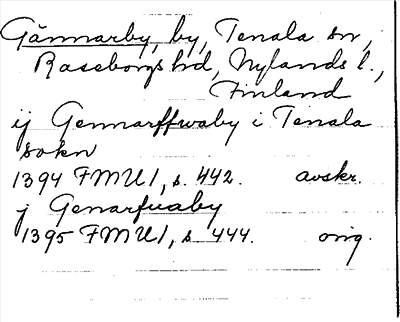 Gännarby, by, Tenala sn,
Raseborgs hd, Nylands l.,
Finland
ij Gennarffwaby i Tenala
sokn
1394 FMU 1, s. 442. avskr.
j Genarfuaby
1395 FMU 1, s. 444. orig.